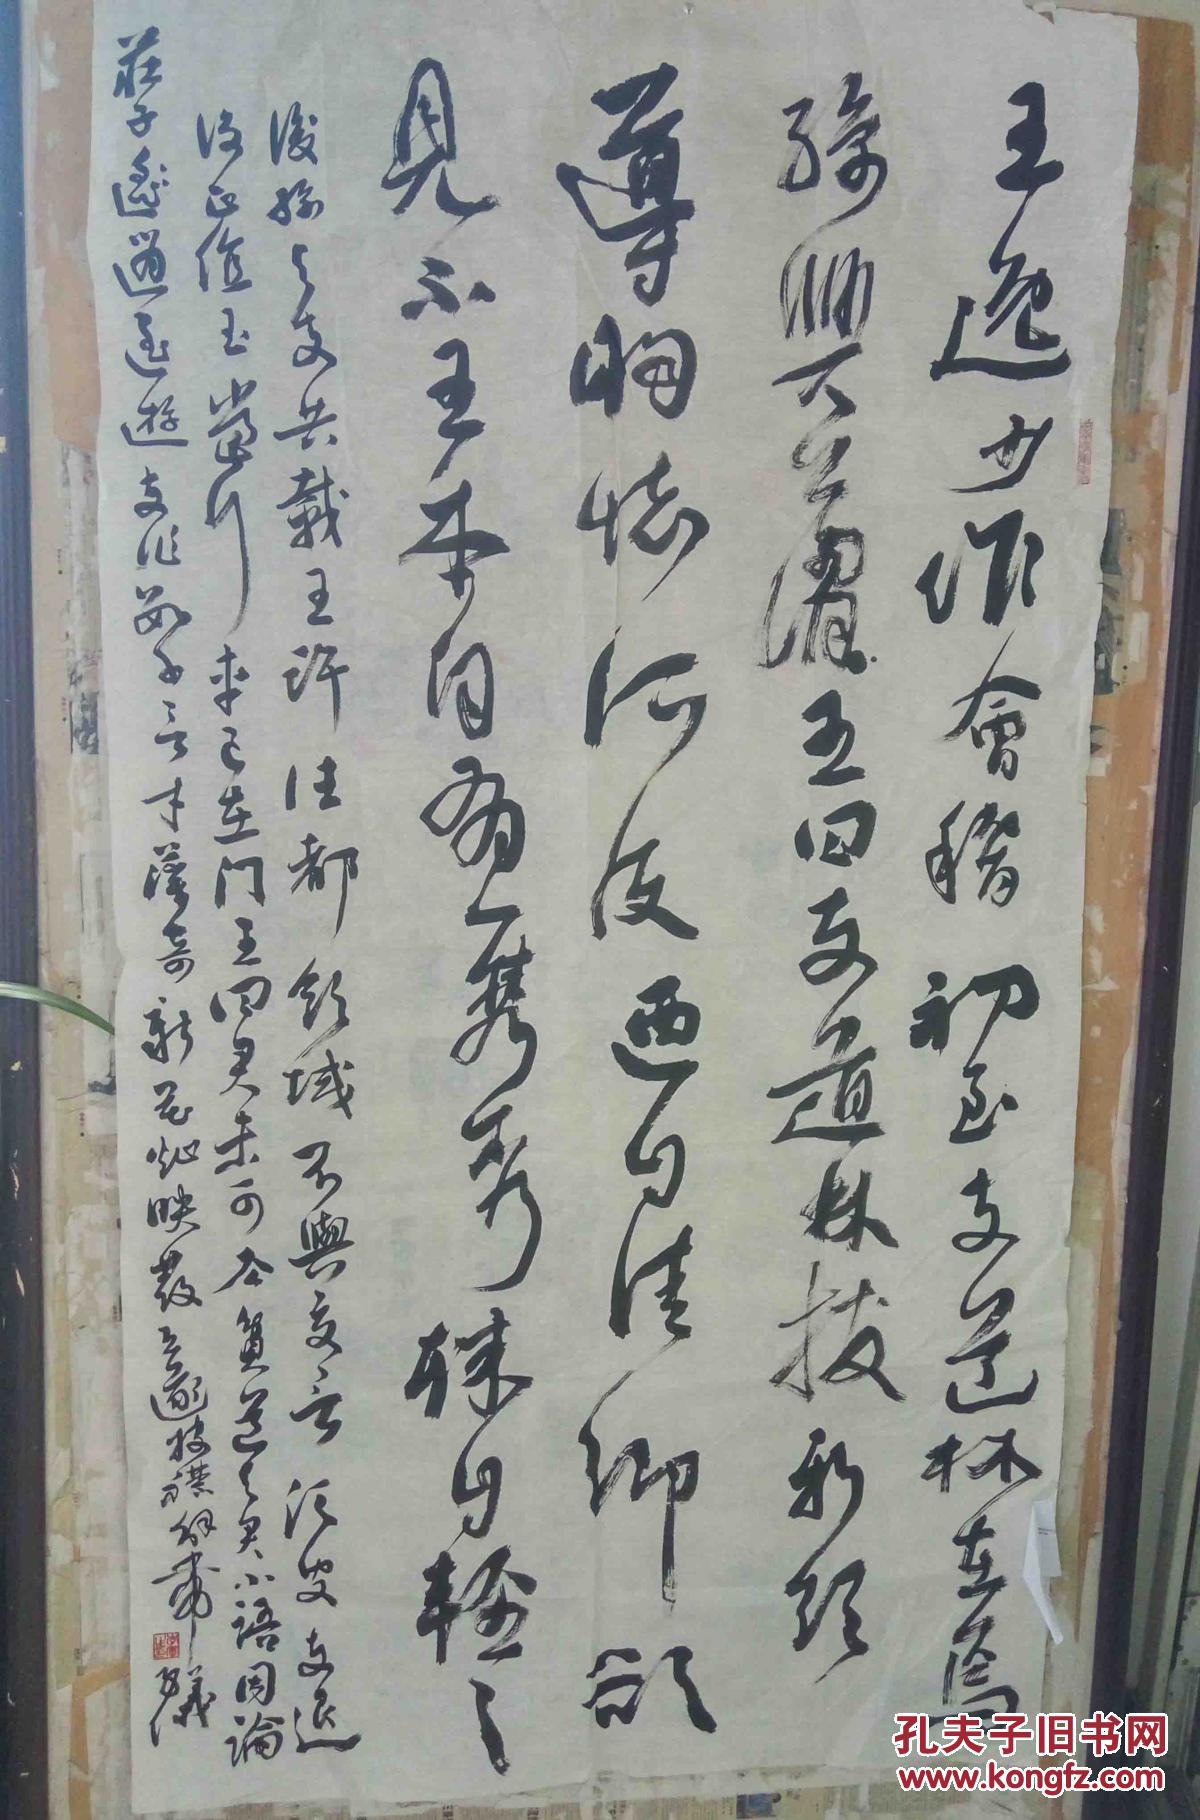 王逸少作會稽初至支道林在焉
孫興公謂王曰支道林拔新領
胸懷所及迺自佳卿欲
見不王本自有一雋秀殊自輕之
後孫與支共載王許往都領域不與交言須臾支退
後正值王當行車已在門王曰君未可去貧道與君小語因論
莊子遙逍遙遊支作數千言才藻奇新花爛映發王遂披襟解帶
孔夫子旧书网
www.kongfz.com